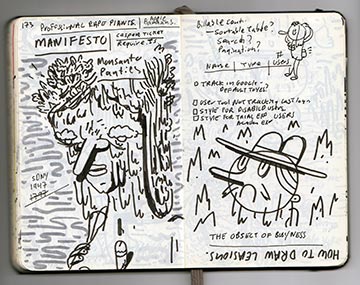 173
PROFESSIONAL RAPO PIANTS.
MANIFESTO
Casper Ticket
Require
Monsanto
Panties
SONY
1947
Billable Count:
- Sortable Table?
- Search?
- Pagination?
NAME | TYPE | USERS
TRACK IN GOOGLE - ?
DEFAULT TYPE?
USER TOOL NOT TRACKING LAST LOGIN
STYLE FOR DISABLED USER
STYLE FOR TRIAL EXP USERS
THE OBJECT OF BUSYNESS
HOW TO DRAW LEASIONS.